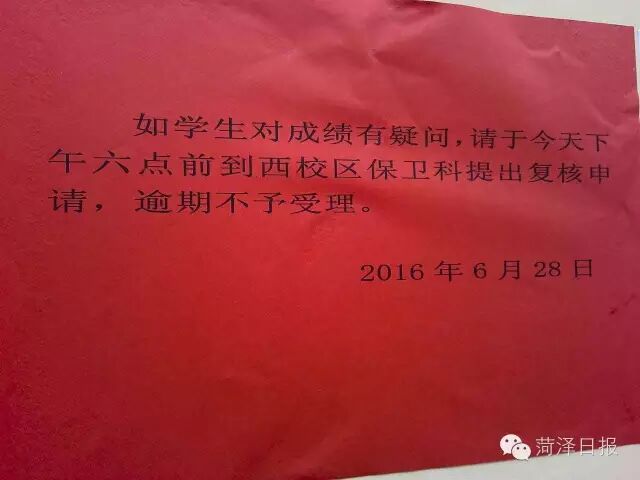 如学生对成绩有疑问,请于今天下
午六点前到西校区保卫科提出复核申
请，逾期不予受理。
2016 年 6 月 28 日
菏泽日报